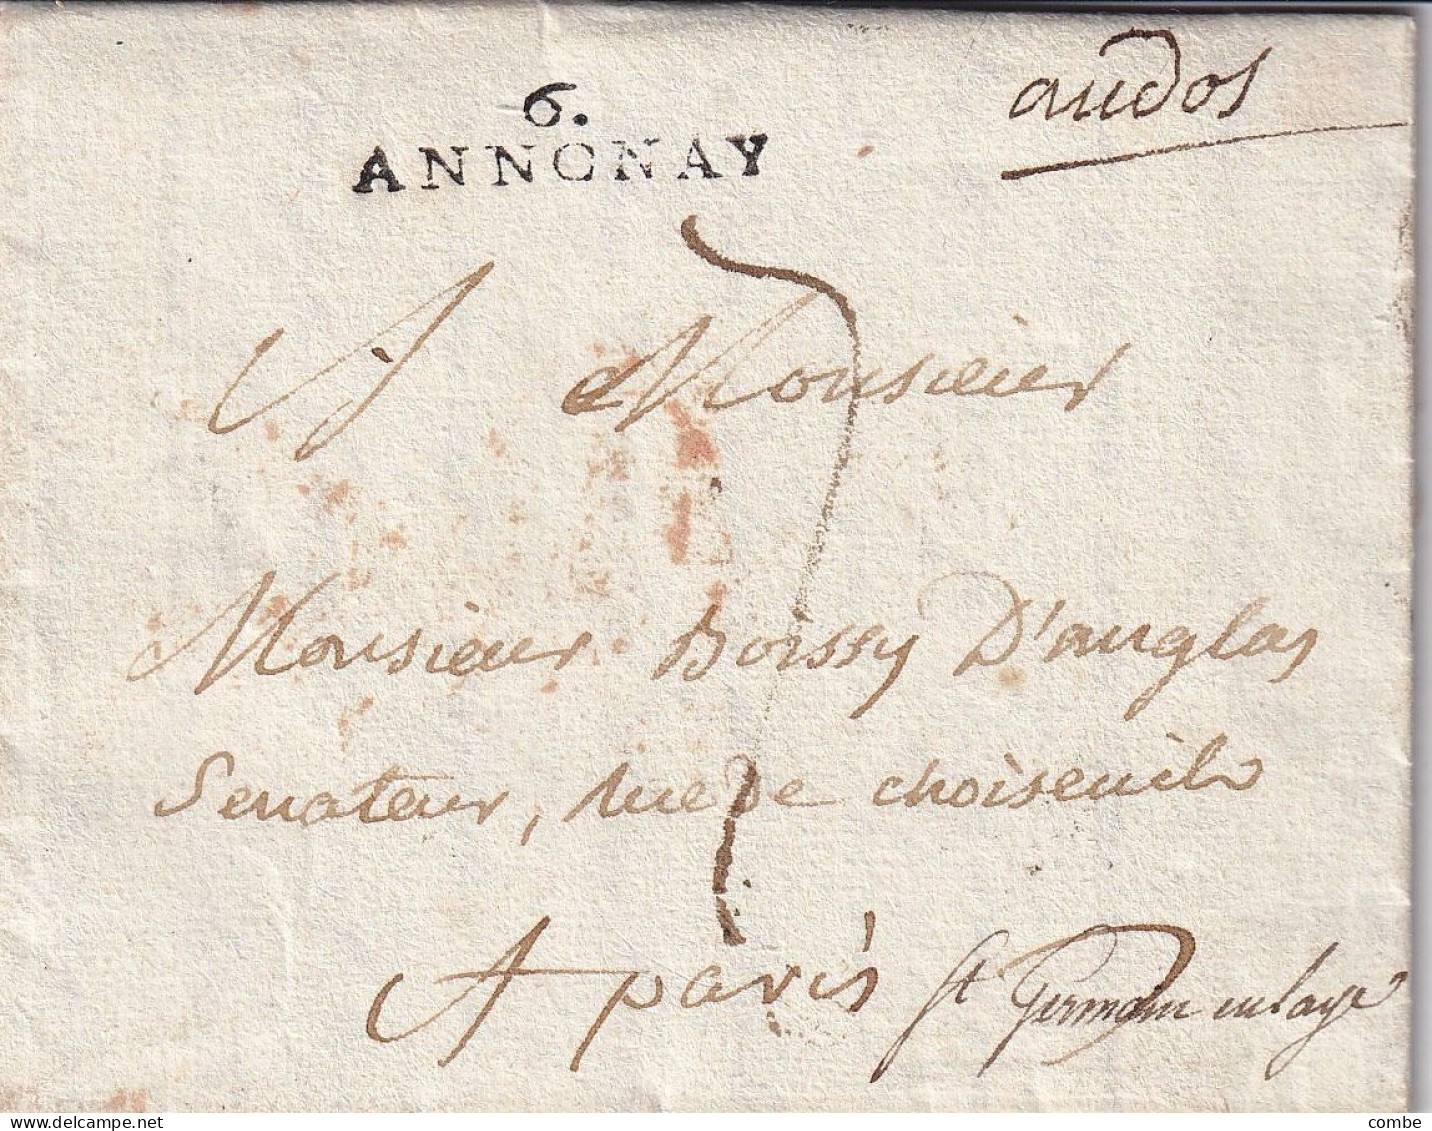 6.
ANNONAY
audos
A Monsieur
7
Monsieur Boissy D'anglas
Senateur, rue de choiseuil
A paris
St Germain enlaye
delcampe.net
combe